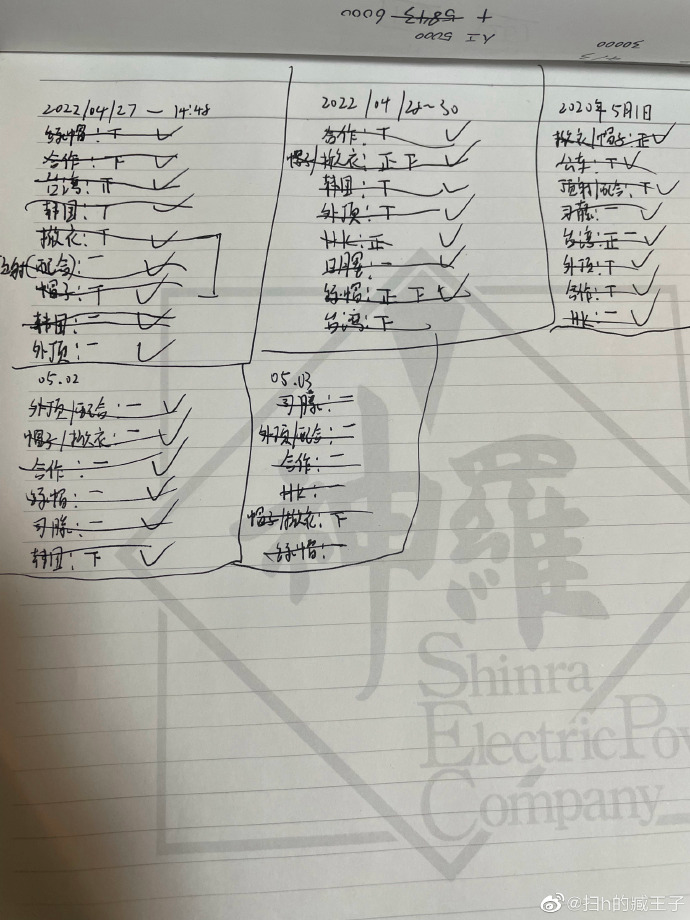 + 5843 6000
人工 5000
30000
2022/04/27 — 14:48
绿帽：下
合作：下
台湾：正
韩国：下
撤衣：下
(配合)：二
帽子：下
韩国：二
外顶：一
2022/04/28~30
合作：下
帽子/撤衣：正下
韩国：下
外顶：下
HK：正
一
绿帽：正下
台湾：下
2020年5月1日
撤衣/帽子：正
公车：下
配合：下
司藤：一
台湾：正二
外顶：下
合作：下
HK：一
05.02
外顶/配合：一
帽子/撤衣：二
合作：二
绿帽：二
司藤：二
韩国：下
05.03
司藤：二
外顶/配合：二
合作：二
HK：一
帽子/撤衣：下
绿帽：一
神羅
Shinra
Electric Pow
Company
@扫h的臧王子